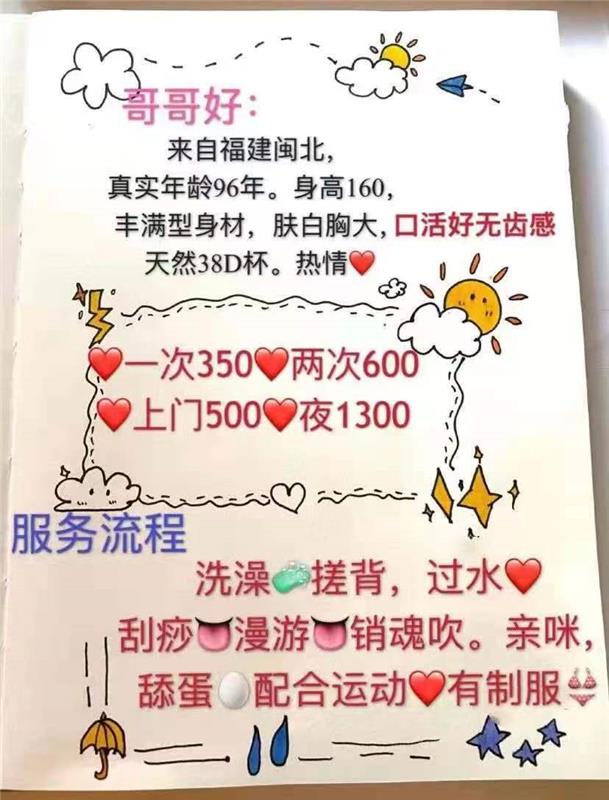 哥哥好：
来自福建闽北，
真实年龄96年。身高160，
丰满型身材，肤白胸大，口活好无齿感
天然38D杯。热情❤️
❤️一次350❤️两次600
❤️上门500❤️夜1300
服务流程
洗澡🧼搓背，过水❤️
刮痧👅漫游👅销魂吹。亲咪，
舔蛋🥚配合运动❤️有制服👙